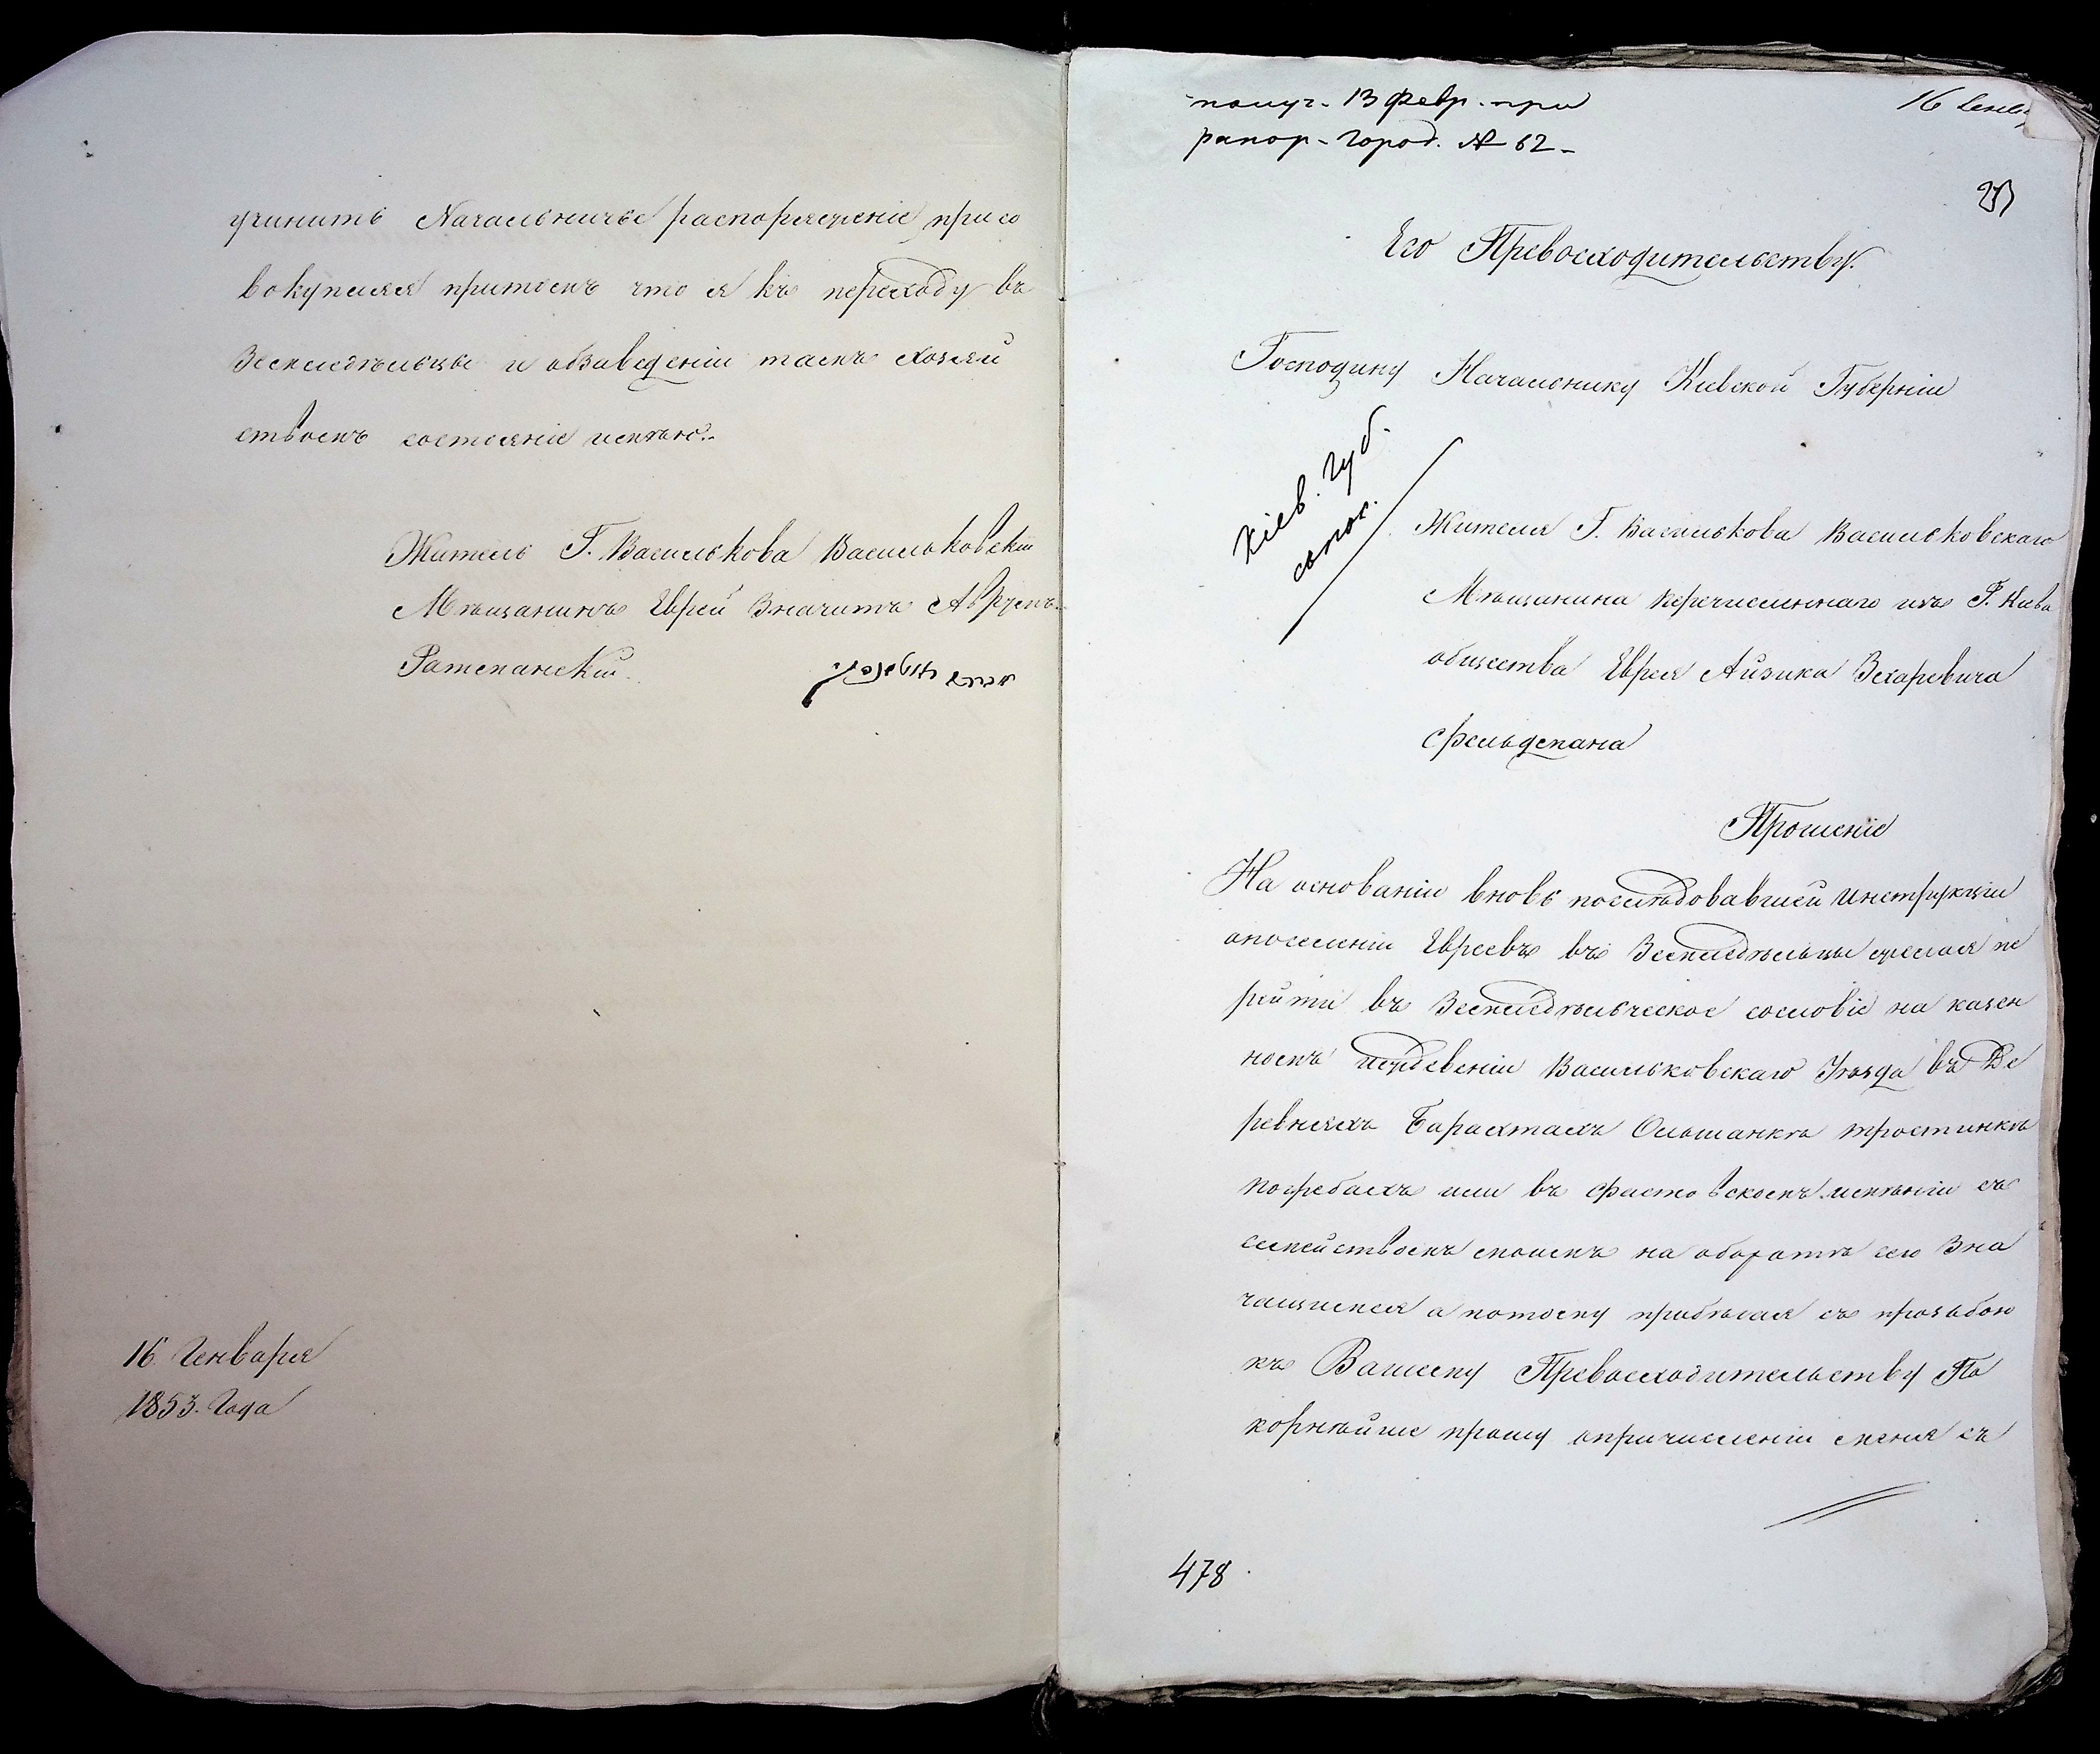 учинить Начальничье распоряженіе присо
вокупляя притомъ что я къ переходу въ
Земледѣльцы и обзаведеніи тамъ хозяй
ствомъ состояніе имѣю.
Житель Г. Василькова Васильковскій
Мѣщанинъ Еврей Значитъ Аврумъ
16. Генваря
1853. Года
получ. 13 февр. при
рапор. Город. № 62
16 Генв
Его Превосходительству.
Господину Начальнику Кіевской Губерніи
Кіев. Губ.
Жителя Г. Василькова Васильковскаго
Мѣщанина перечисленнаго изъ Г. Кіева
общества Еврея Айзика Зехаревича
Фельдмана
Прошеніе
На основаніи вновь послѣдовавшей Инструкціи
опоселеніи Евреевъ въ Земледѣльцы желая пе
рейти въ Земледѣльческое сословіе на казен
номъ иждевеніи Васильковскаго Уѣзда въ Де
ревняхъ Барахтахъ Ольшанкѣ тростинкѣ
погребахъ или въ Фастовскомъ имѣніи съ
семействомъ моимъ на оборотѣ сего Зна
чащимся а потому прибѣгая съ прозьбою
къ Вашему Превосходительству По
корнѣйше прошу опричисленіи меня съ
478